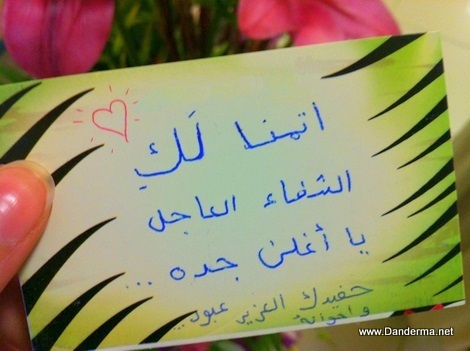 أتمنا لَكِ
الشفاء العاجل
يا أغلى جده ...
حفيدك العزيز عبود..
و اخوانه
www.Danderma.net